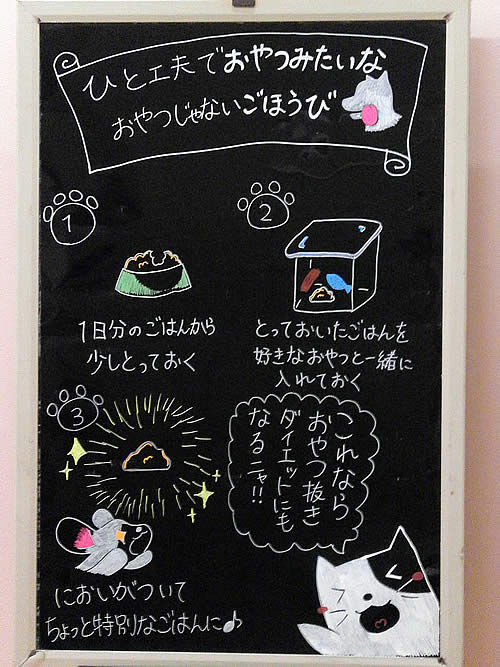 ひと工夫でおやつみたいな
おやつじゃないごほうび
1
1日分のごはんから
少しとっておく
2
とっておいたごはんを
好きなおやつと一緒に
入れておく
3
においがついて
ちょっと特別なごはんに♪
これなら
おやつ抜き
ダイエットにも
なるニャ!!